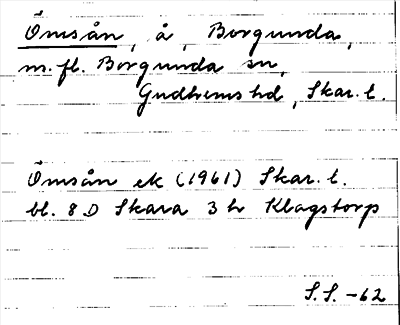 Ömsån, å, Borgunda,
m.fl. Borgunda sn,
Gudhems hd, Skar. l.
Ömsån ek (1961) Skar. l.
bl. 8 D Skara 3 h Klagstorp
S.S. -62